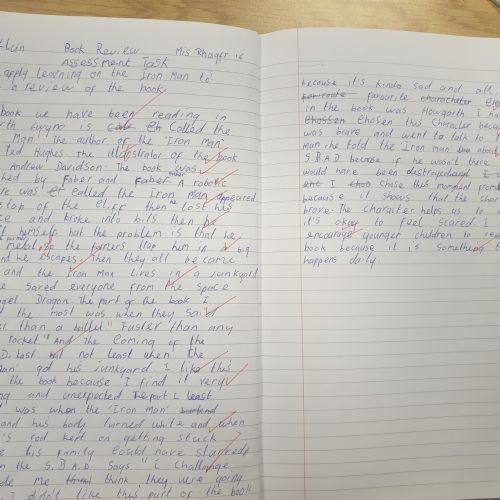 Book Review
Assessment Task
apply learning on the Iron Man to
a review of the book.
book we have been reading in
is called the
Man' The author of the 'Iron Man'
Ted Hughes. The illustrator of the book
Andrew Davidson. The book was
by Faber and Faber. A robotic
was called the Iron Man appeared
top of the cliff then he lost his
and broke into bits then he
himself but the problem is that he
metal, so the farmers trap him in a big
and he escapes, then they all became
and the Iron Man lives in a junkyard
saved everyone from the space
Angel Dragon. The part of the book I
the most was when they said
than a bullet" Faster than any
rocket" And The Coming of the
Last but not least when the
Man' got his junkyard. I like this
the book because I find it very
and unexpected. The part I least
was when the 'Iron Man'
and his body turned white and when
rod kept on getting stuck
his family could have starved
the S.B.A.D says "I challenge
me think they were going
I didn't like this part of the book
because it's kinda sad and all
favourite character
in the book was Howgarth I
chosen this character because
was brave and went to talk to
man he told the Iron man about
S.B.A.D because if he wasn't there
would have been destroyed
chose this moment from
because it shows that the
brave. The character helps us to
it's okay to feel scared I
encourage younger children to read
book because it is something
happens daily.